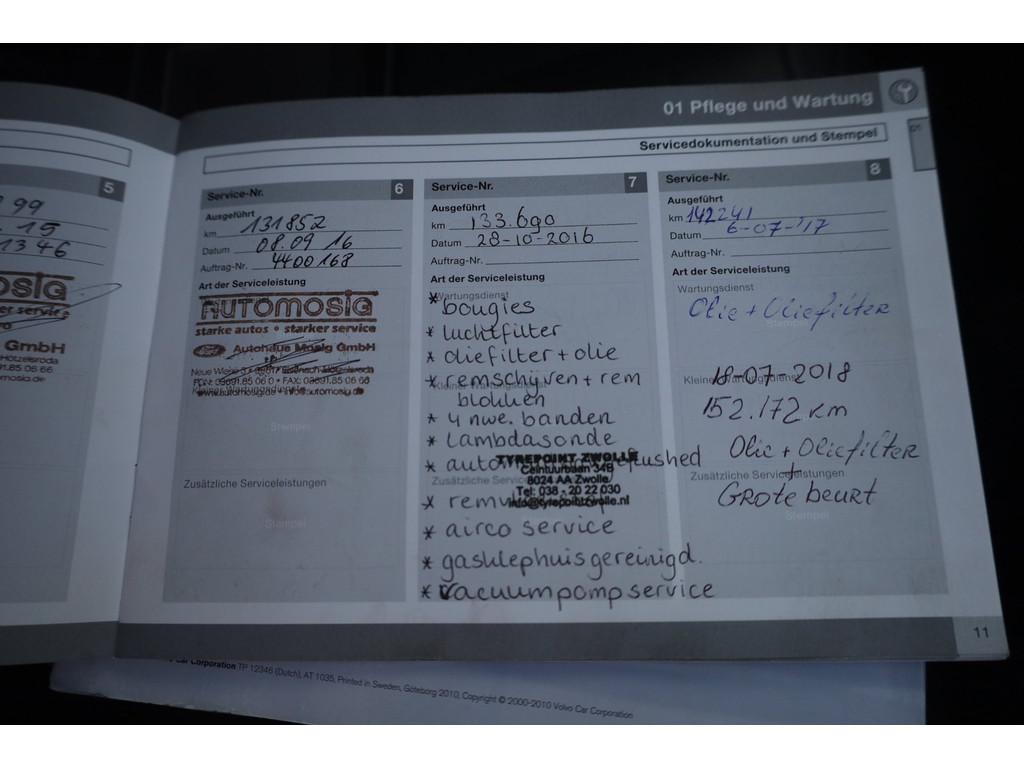 01 Pflege und Wartung
01
Servicedokumentation und Stempel
5
99
15
1346
GmbH
Hötzelsroda
mosig.de
Service-Nr. 6
Ausgeführt
km 131852
Datum 08.09 16
Auftrag-Nr. 4400168
Art der Serviceleistung
AUTOMOSIG
starke autos • starker service
Ford Autohaus Mosig GmbH
Kleiner Wartungsdienst
Stempel
Zusätzliche Serviceleistungen
Stempel
Service-Nr. 7
Ausgeführt
km 133.690
Datum 28-10-2016
Auftrag-Nr.
Art der Serviceleistung
Wartungsdienst
* bougies
* luchtfilter
* oliefilter + olie
* remschijven + rem
blokken
* 4 nwe. banden
* lambdasonde
TYREPOINT ZWOLLE
Ceintuurbaan 34B
8024 AA Zwolle
Tel: 038 - 20 22 030
info@tyrepointzwolle.nl
* airco service
* gasklephuis gereinigd.
* vacuumpomp service
Service-Nr. 8
Ausgeführt
km 142241
Datum 6-07-'17
Auftrag-Nr.
Art der Serviceleistung
Wartungsdienst
Olie + Oliefilter
Stempel
Kleiner Wartungsdienst
18-07-2018
152.172 km
Olie + Oliefilter
+
Zusätzliche Serviceleistungen
Grote beurt
Stempel
11
Car Corporation TP 12346 (Dutch), AT 1035, Printed in Sweden, Göteborg 2010, Copyright © 2000-2010 Volvo Car Corporation